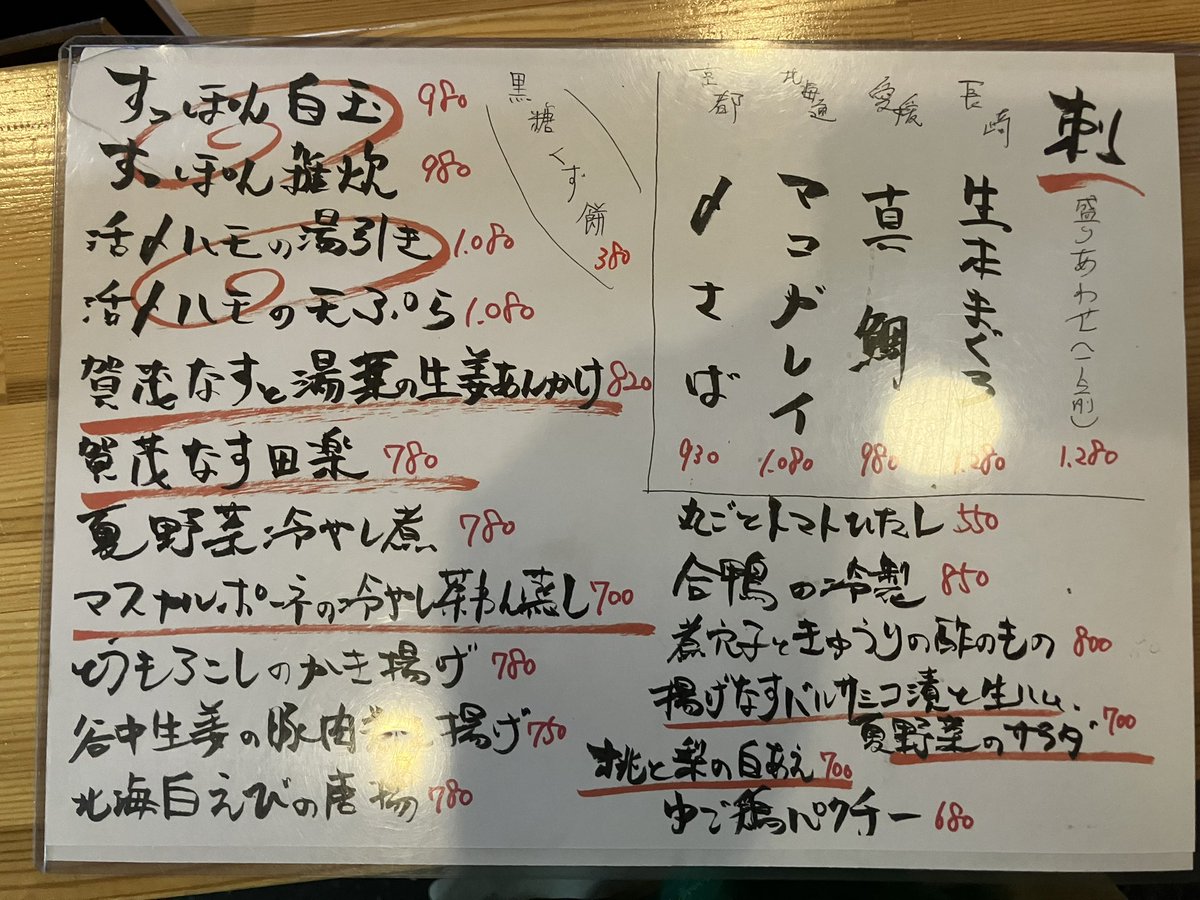 刺
盛りあわせ(一人前) 1.280
長崎 生本まぐろ 1.280
愛媛 真鯛 980
北海道 マコガレイ 1.080
京都 〆さば 930
黒糖くず餅 380
すっぽん白玉 980
すっぽん雑炊 980
活〆ハモの湯引き 1.080
活〆ハモの天ぷら 1.080
賀茂なすと湯葉の生姜あんかけ 820
賀茂なす田楽 780
夏野菜冷やし煮 780
マスカルポーネの冷やし茶わん蒸し 700
とうもろこしのかき揚げ 780
谷中生姜の豚肉 揚げ 750
北海白えびの唐揚 780
丸ごとトマトひたし 550
合鴨の冷製 850
煮穴子ときゅうりの酢のもの 800
揚げなすバルサミコ漬と生ハム、
夏野菜のサラダ 700
桃と梨の白あえ 700
ゆで鶏パクチー 680